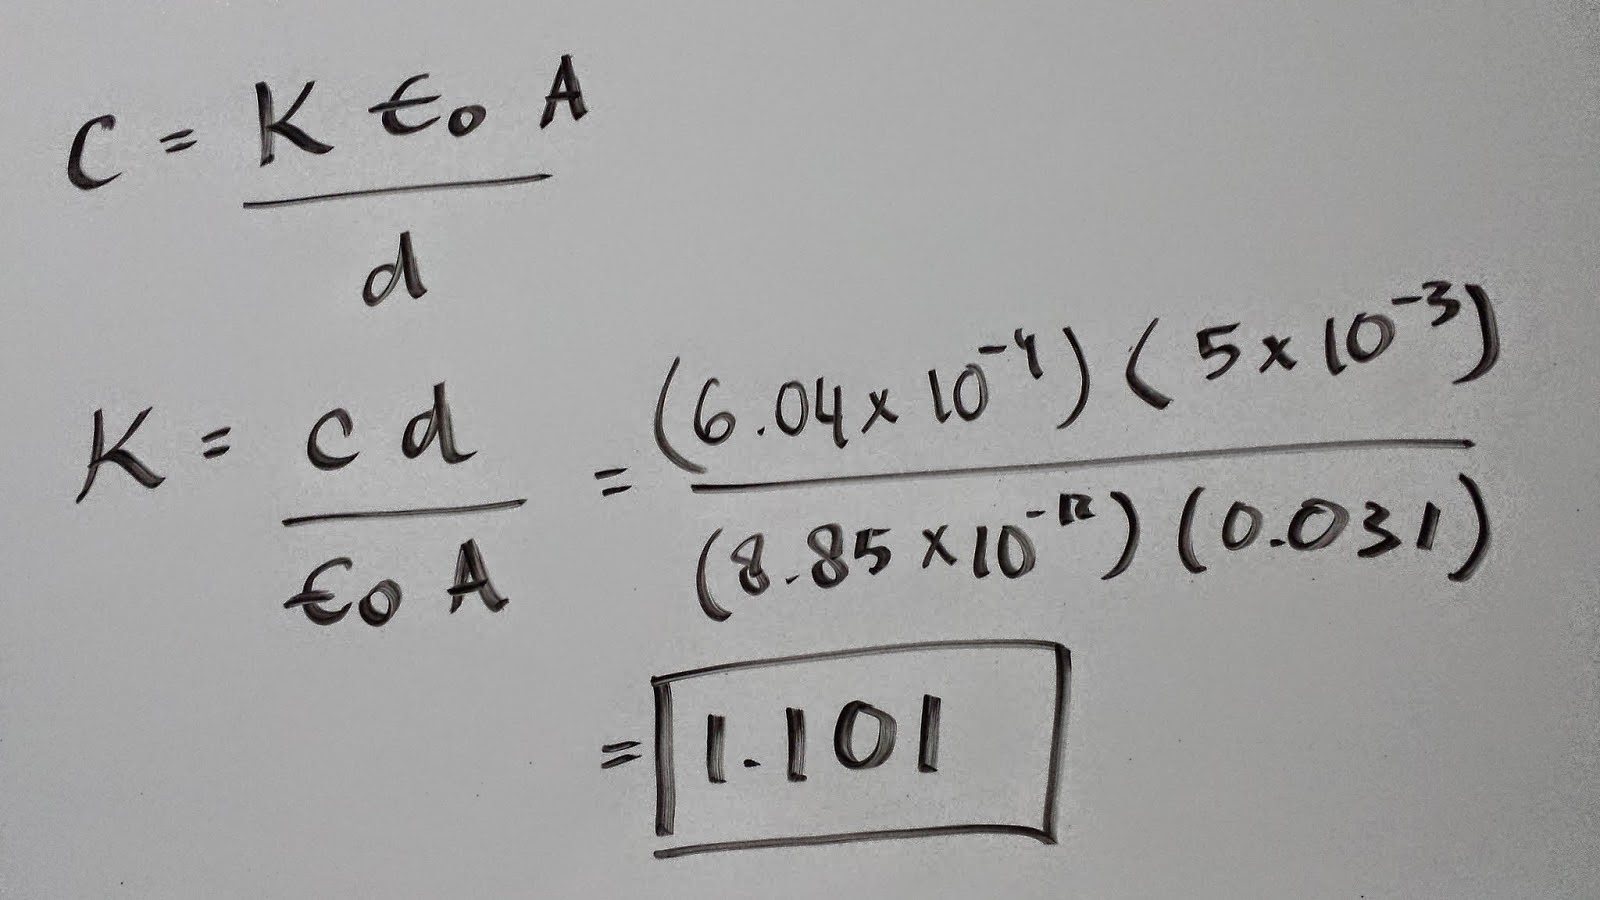 C = K ε₀ A / d
K = c d / ε₀ A = (6.04 x 10⁻⁴) (5 x 10⁻³) / (8.85 x 10⁻¹²) (0.031)
= 1.101